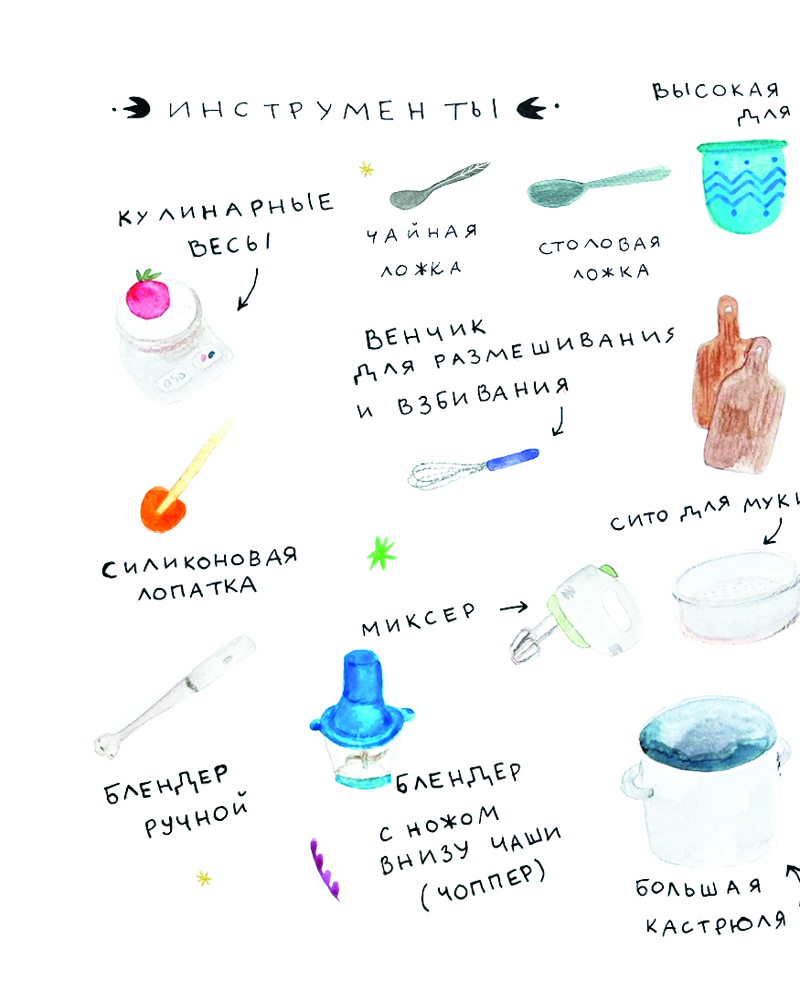 ИНСТРУМЕНТЫ
ВЫСОКАЯ
ДЛЯ
КУЛИНАРНЫЕ
ВЕСЫ
ЧАЙНАЯ
ЛОЖКА
СТОЛОВАЯ
ЛОЖКА
ВЕНЧИК
ДЛЯ РАЗМЕШИВАНИЯ
И ВЗБИВАНИЯ
СИТО ДЛЯ МУКИ
СИЛИКОНОВАЯ
ЛОПАТКА
МИКСЕР
БЛЕНДЕР
РУЧНОЙ
БЛЕНДЕР
С НОЖОМ
ВНИЗУ ЧАШИ
(ЧОППЕР)
БОЛЬШАЯ
КАСТРЮЛЯ